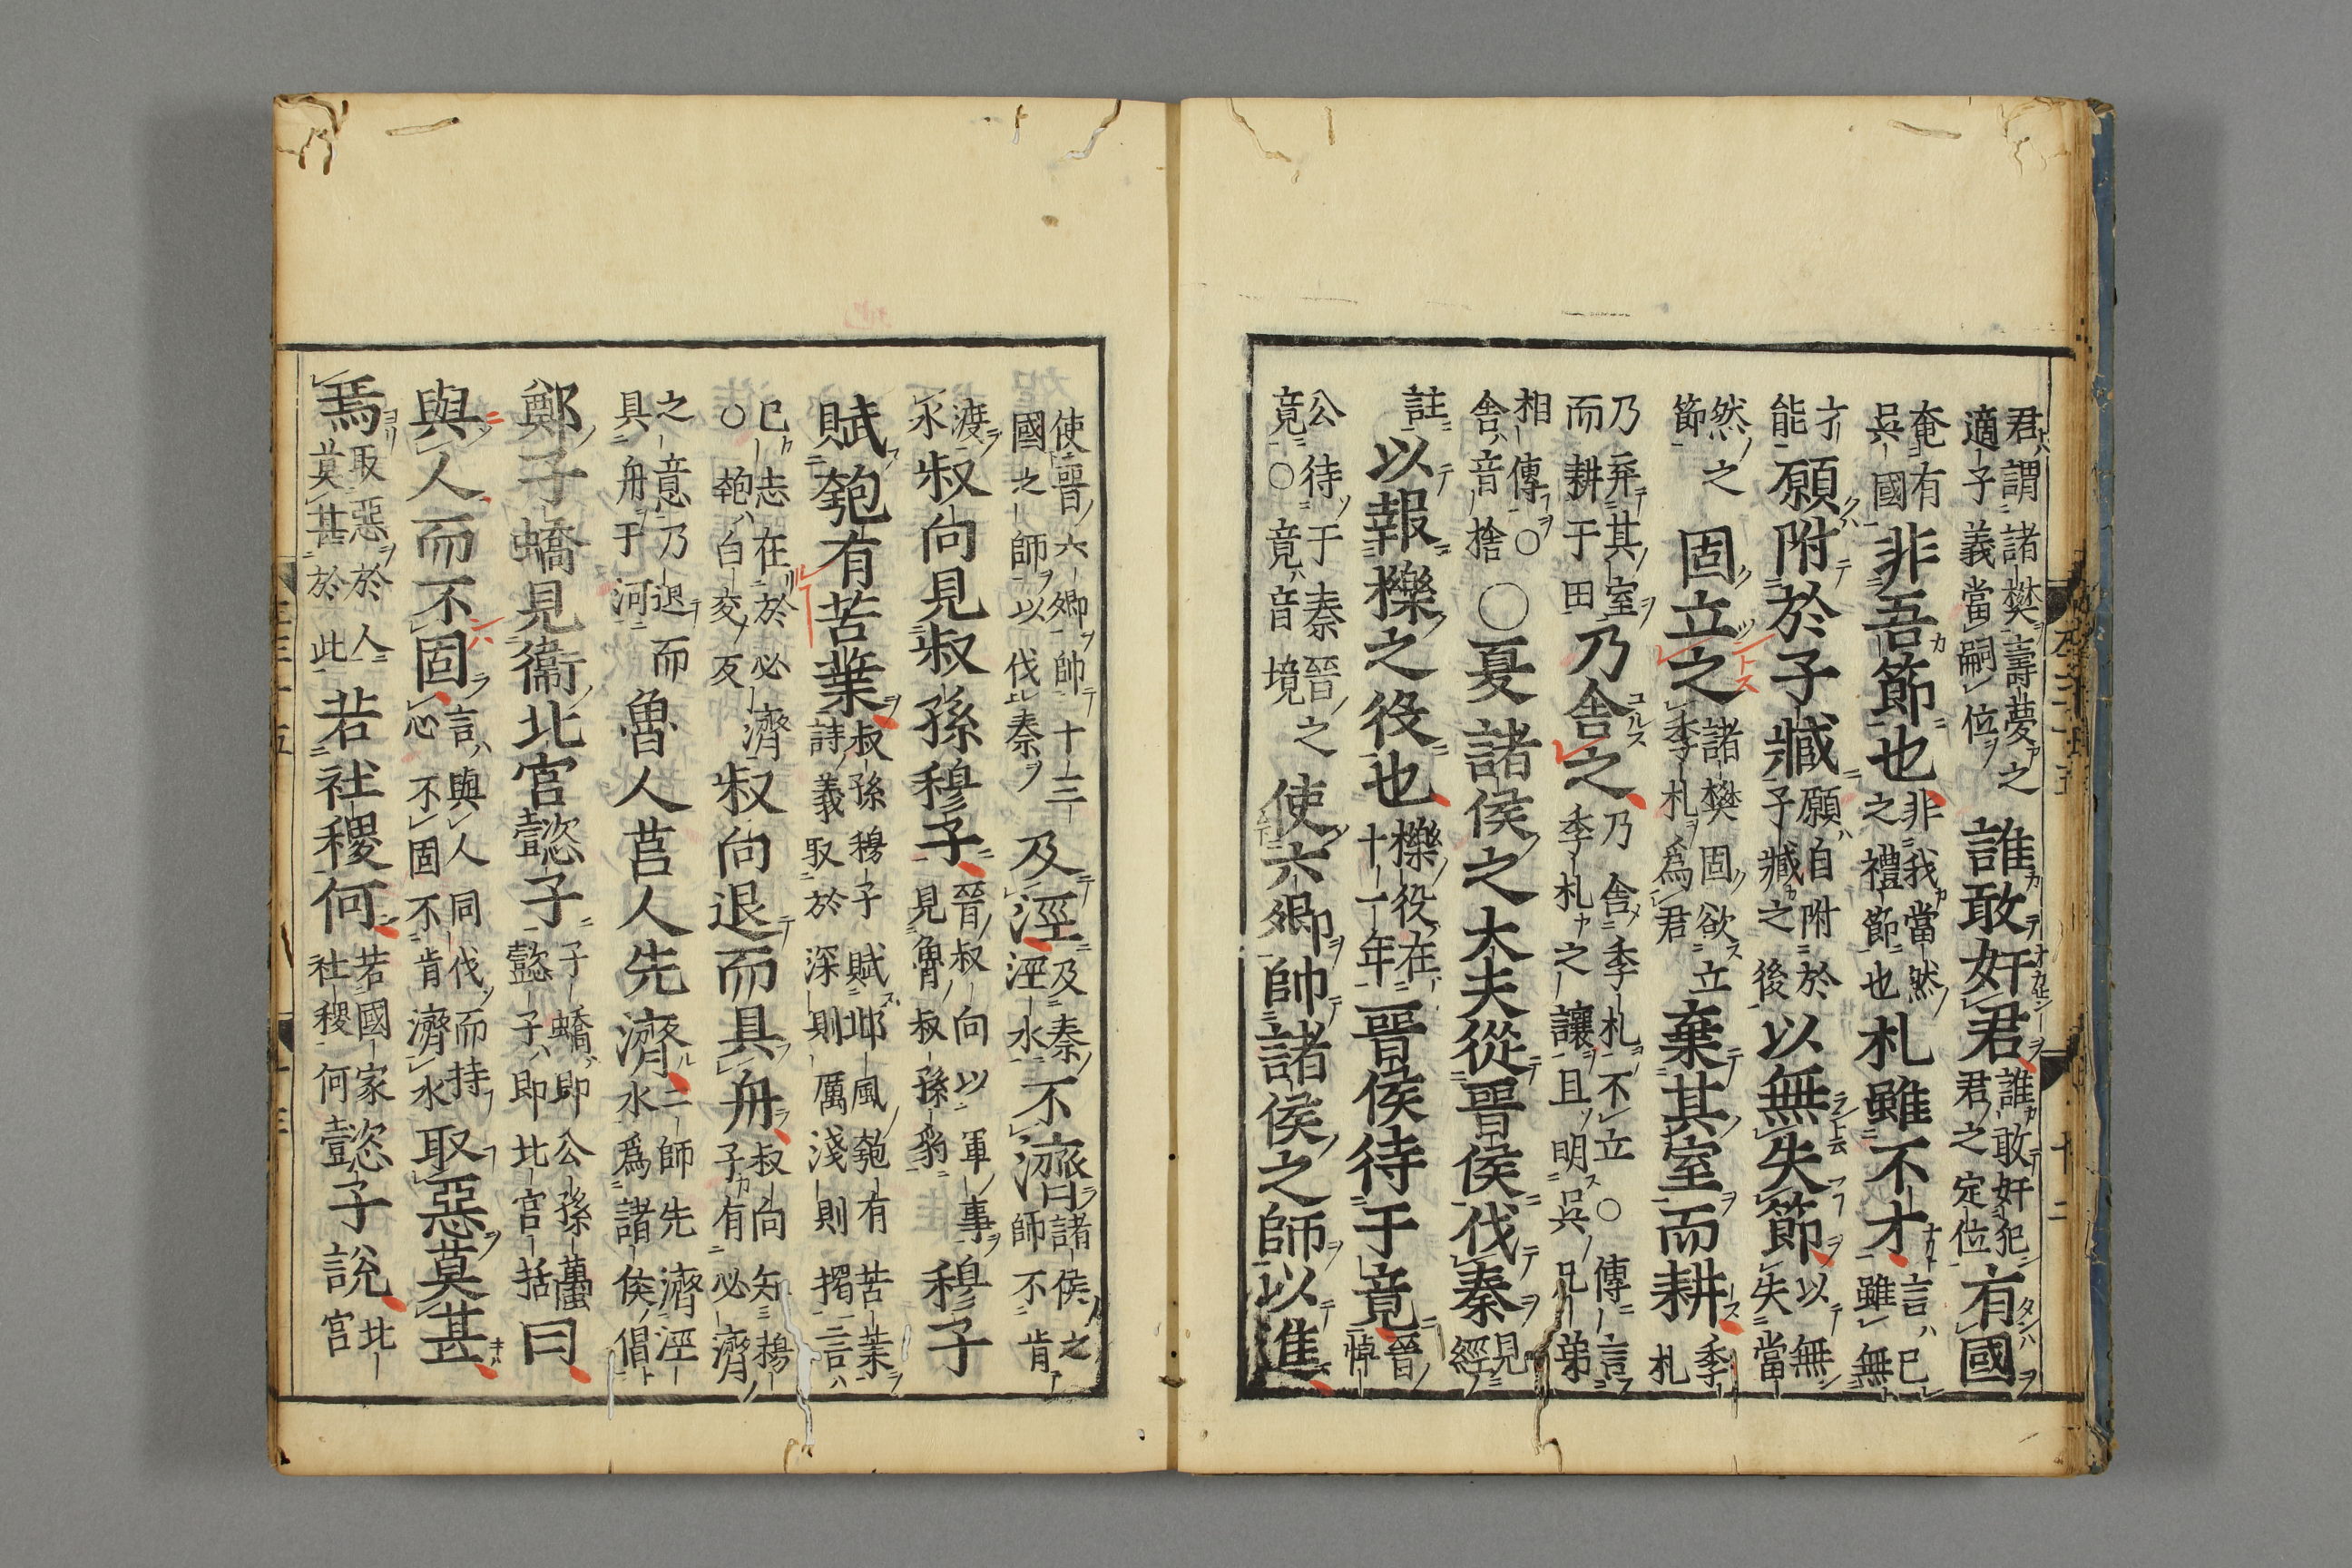 君謂諸樊壽夢之適子義當嗣位誰敢奸君誰敢奸犯君之定位有國
奄有吳國非吾節也非我當然之禮節也札雖不才言己雖無
才能願附於子臧願自附於子臧之後以無失節以無失當
然之節固立之諸樊固欲立季札爲君棄其室而耕季札
乃弃其室而耕于田乃舍之乃舍季札不立季札之讓且明吳兄弟○傳言
相傳○舍音捨○夏諸侯之大夫從晋侯伐秦見經
註以報櫟之役也櫟役在十一年晋侯待于竟晋悼
公待于秦晉之竟○竟音境使六卿帥諸侯之師以進
使晉六卿帥十三國之師以伐秦及涇及秦涇水不濟諸侯之師不肯
渡水叔向見叔孫穆子晉叔向以軍事見魯叔孫豹穆子
賦匏有苦葉叔孫穆子賦邶風匏有苦葉詩義取於深則厲淺則揭言
已志在於必濟○匏白交反叔向退而具舟叔向知穆子有必濟
之意乃退而具舟于河魯人莒人先濟二師先濟涇水爲諸侯倡
鄭子蟜見衞北宮懿子子蟜即公孫蠆懿子即北宮括曰
與人而不固言與人同伐而持心不固不肯濟水取惡莫甚
焉取惡於人莫甚於此若社稷何若國家社稷何懿子說北宮